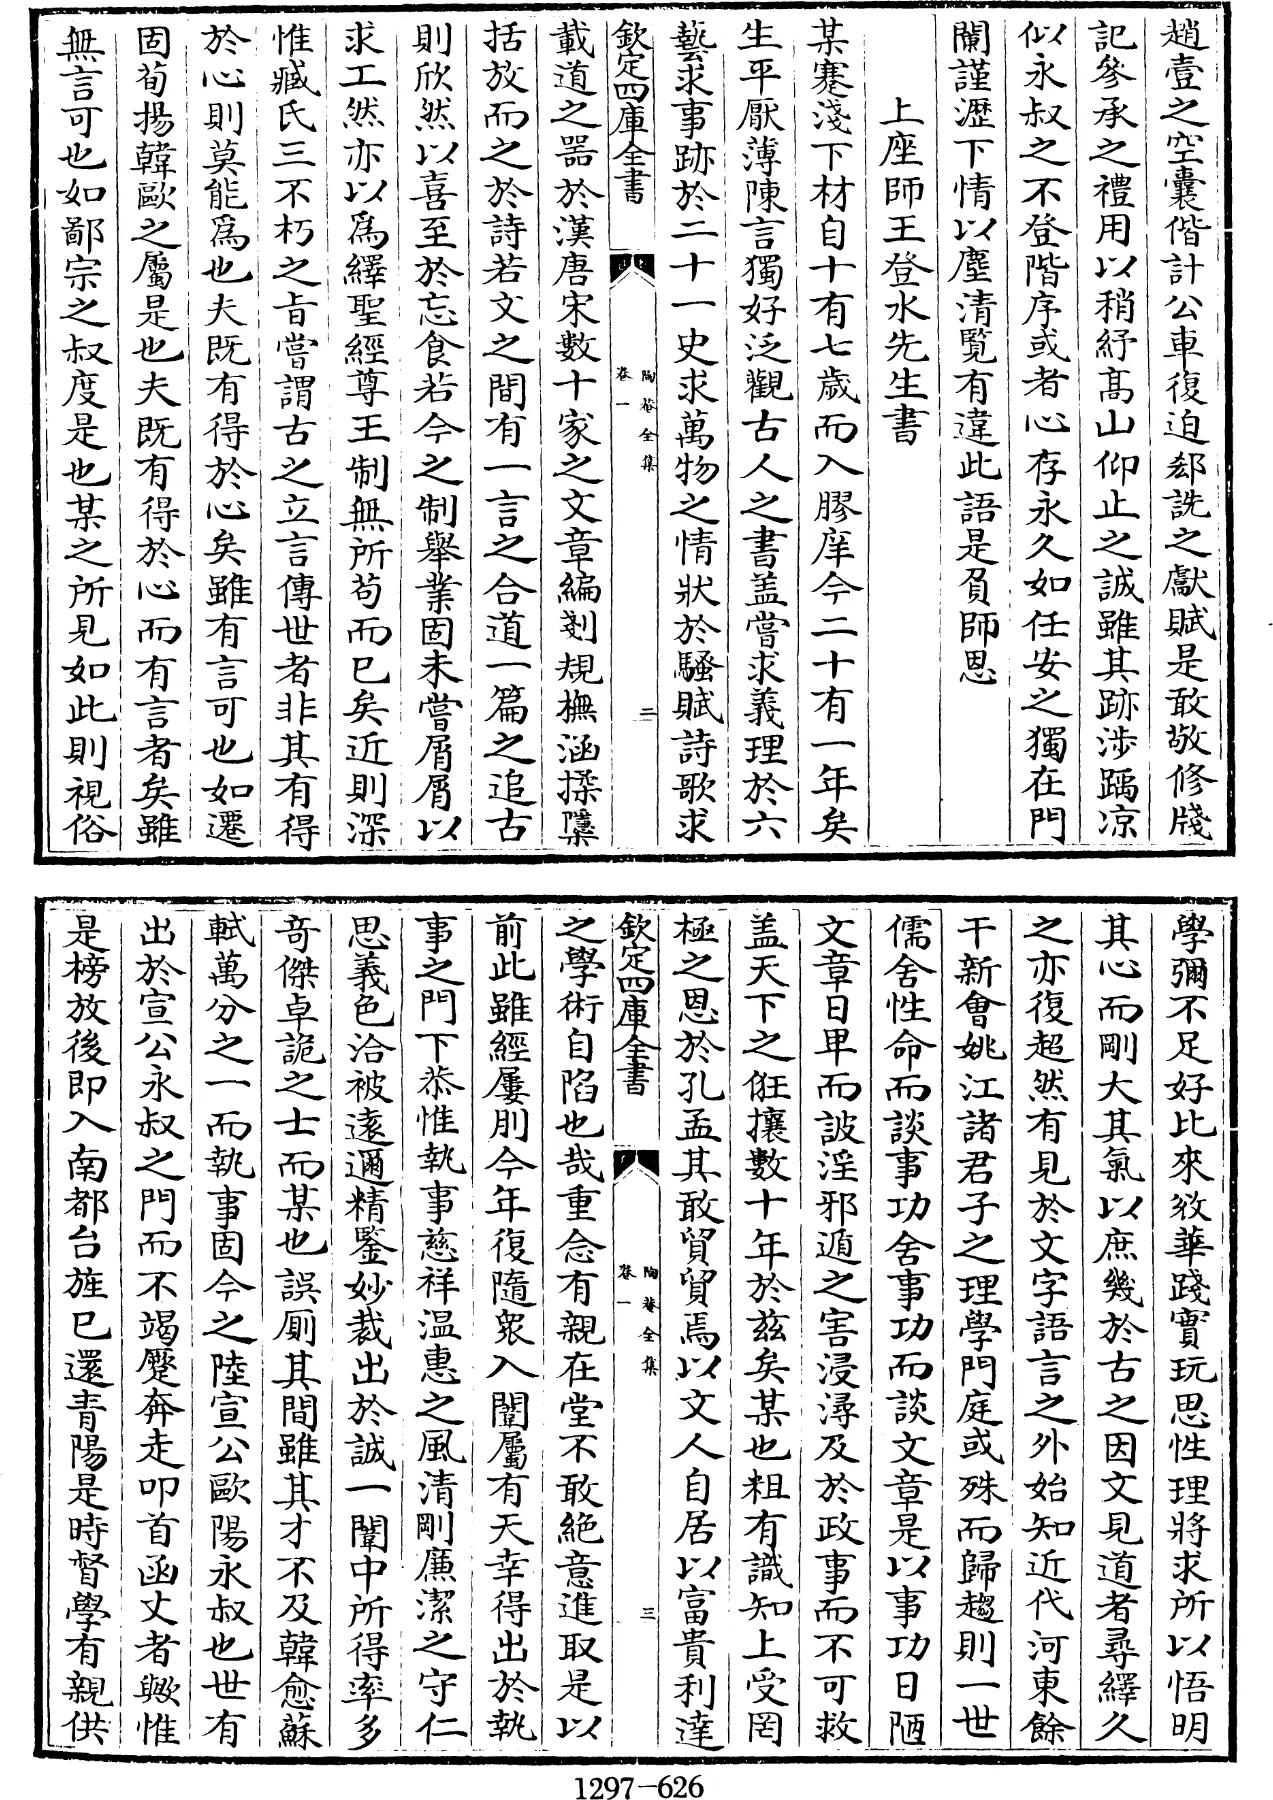 趙壹之空囊偕計公車復迫郄詵之獻賦是敢敬修牋
記參承之禮用以稍紓髙山仰止之誠雖其跡渉踽凉
似永叔之不登階序或者心存永久如任安之獨在門
闌謹瀝下情以塵清覧有違此語是負師恩
上座師王登水先生書
某蹇淺下材自十有七歳而入膠庠今二十有一年矣
生平厭薄陳言獨好泛觀古人之書盖嘗求義理於六
藝求事跡於二十一史求萬物之情狀於騷賦詩歌求
欽定四庫全書
陶菴全集
卷一
二
載道之器於漢唐宋數十家之文章編剗規橅涵揉檃
括放而之於詩若文之間有一言之合道一篇之追古
則欣然以喜至於忘食若今之制舉業固未嘗屑屑以
求工然亦以爲繹聖經尊王制無所茍而已矣近則深
惟臧氏三不朽之旨嘗謂古之立言傳世者非其有得
於心則莫能爲也夫既有得於心矣雖有言可也如遷
固荀揚韓歐之屬是也夫既有得於心而有言者矣雖
無言可也如鄙宗之叔度是也某之所見如此則視俗
學彌不足好比來斂華踐實玩思性理將求所以悟明
其心而剛大其氣以庶幾於古之因文見道者尋繹久
之亦復超然有見於文字語言之外始知近代河東餘
干新會姚江諸君子之理學門庭或殊而歸趨則一世
儒舍性命而談事功舍事功而談文章是以事功日陋
文章日卑而詖淫邪遁之害浸潯及於政事而不可救
盖天下之俇攘數十年於兹矣某也粗有識知上受罔
極之恩於孔孟其敢貿貿焉以文人自居以富貴利達
欽定四庫全書
陶菴全集
卷一
三
之學術自陷也哉重念有親在堂不敢絶意進取是以
前此雖經屢刖今年復隨衆入闈屬有天幸得出於執
事之門下恭惟執事慈祥温惠之風清剛廉潔之守仁
思義色洽被遠邇精鑒妙裁出於誠一闈中所得率多
竒傑卓詭之士而某也誤厠其間雖其才不及韓愈蘇
軾萬分之一而執事固今之陸宣公歐陽永叔也世有
出於宣公永叔之門而不竭蹷奔走叩首函丈者歟惟
是榜放後即入南都台旌已還青陽是時督學有親供
1297—626